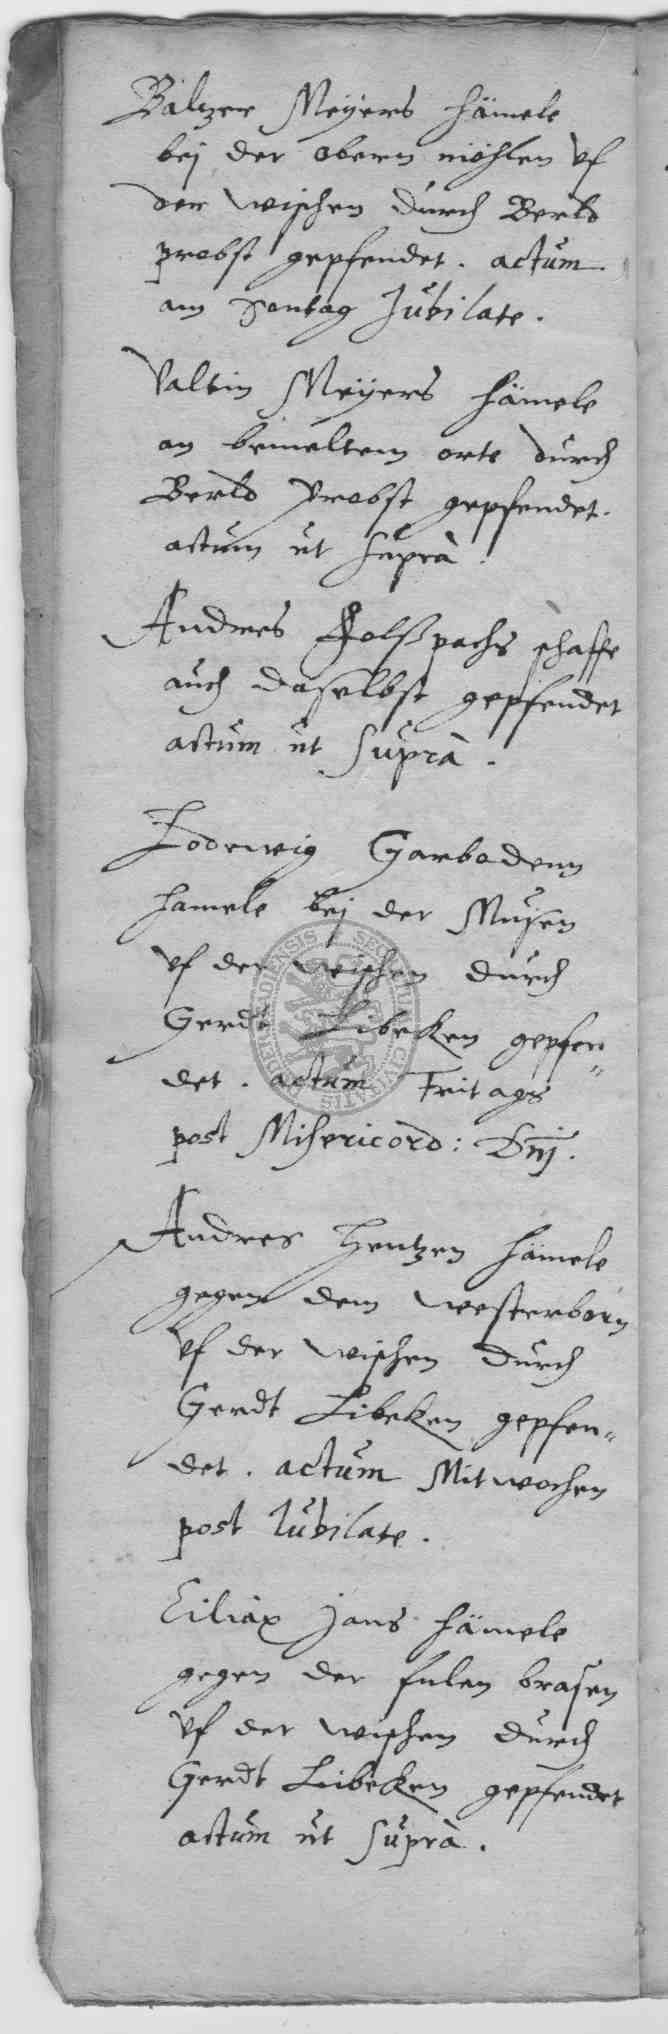 Baltzer Meÿers hämele
bej der obern möhlen vf
der wischen durch Berld
probst gepfendet. actum
am Sontag Jubilate.
Valtin Meÿers hämele
an bemeltem orte durch
Berld Probst gepfendet.
actum ut suprà
Andres Holßpachs schaffe
auch daselbst gepfendet
actum ut suprà.
Lodewig Garbodenn
hamele bej der Musen
vf der wischen durch
Gerdt Libeken gepfen„
det. actum Fritags
post Misericord: Dnj.
Andres Hentzen hämele
gegen dem westerborn
vf der wischen durch
Gerdt Libeken gepfen„
det. actum Mitwochen
post Iubilate.
Ciliax Jans hämele
gegen der fulen brasen
vf der wischen durch
Gerdt Libeken gepfendet
actum ut suprà.